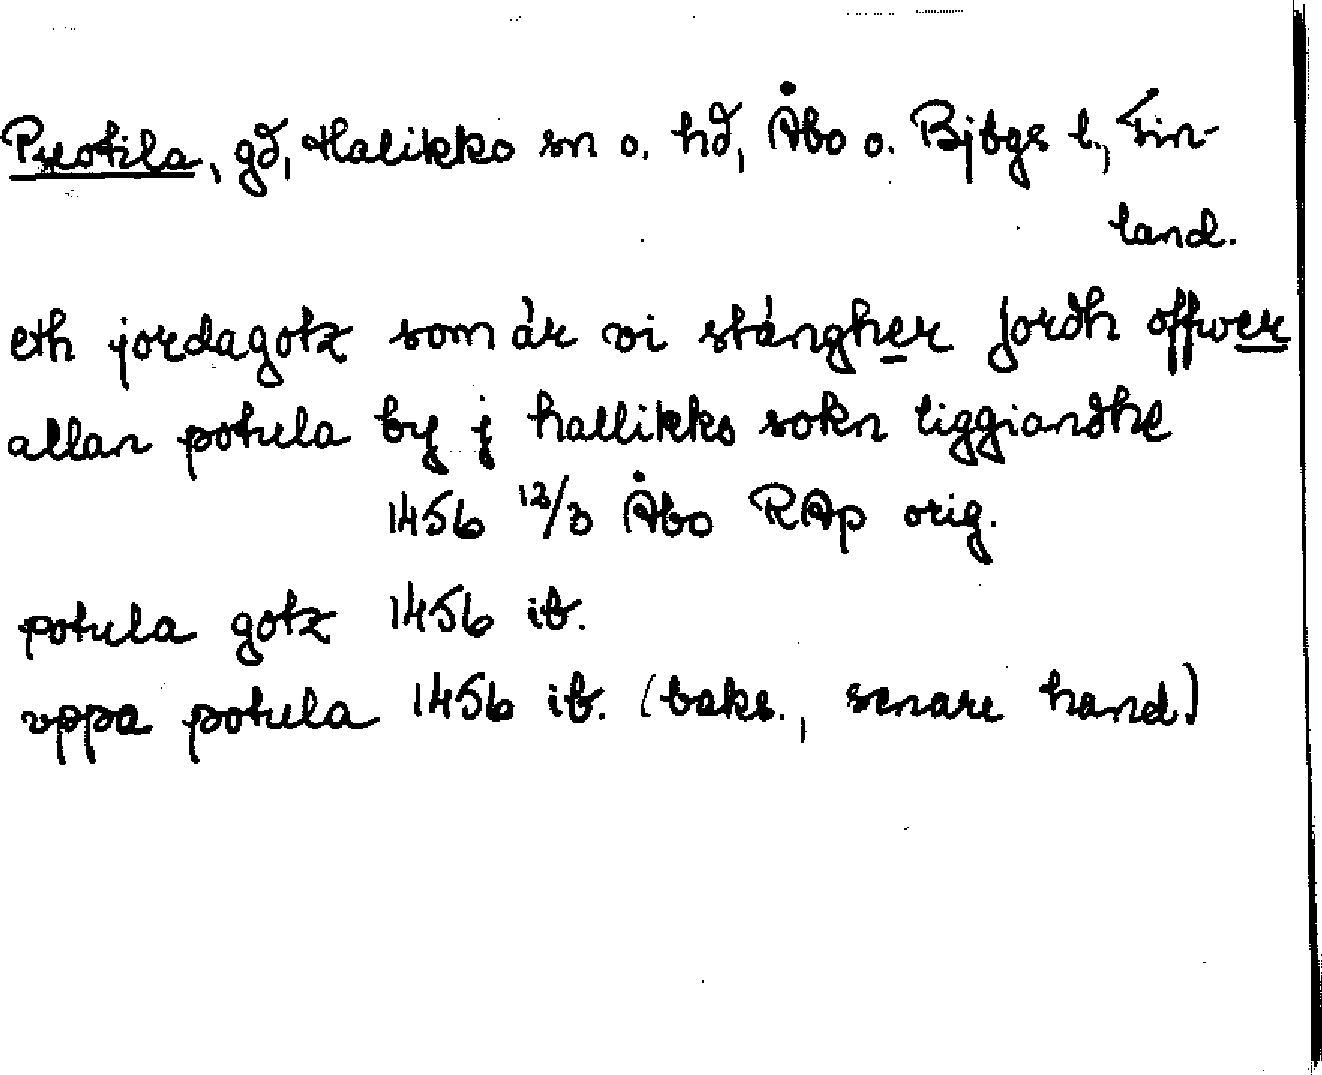 Puotila, gd, Halikko sn o. hd, Åbo o. Bjbgs l., Fin-
land.
eth jordagotz som är vi stängher jordh offwer
allan potula by j hallikko sokn liggiandhe
1456 12/3 Åbo RAp orig.
potula gotz 1456 ib.
vppa potula 1456 ib. (baks., senare hand)